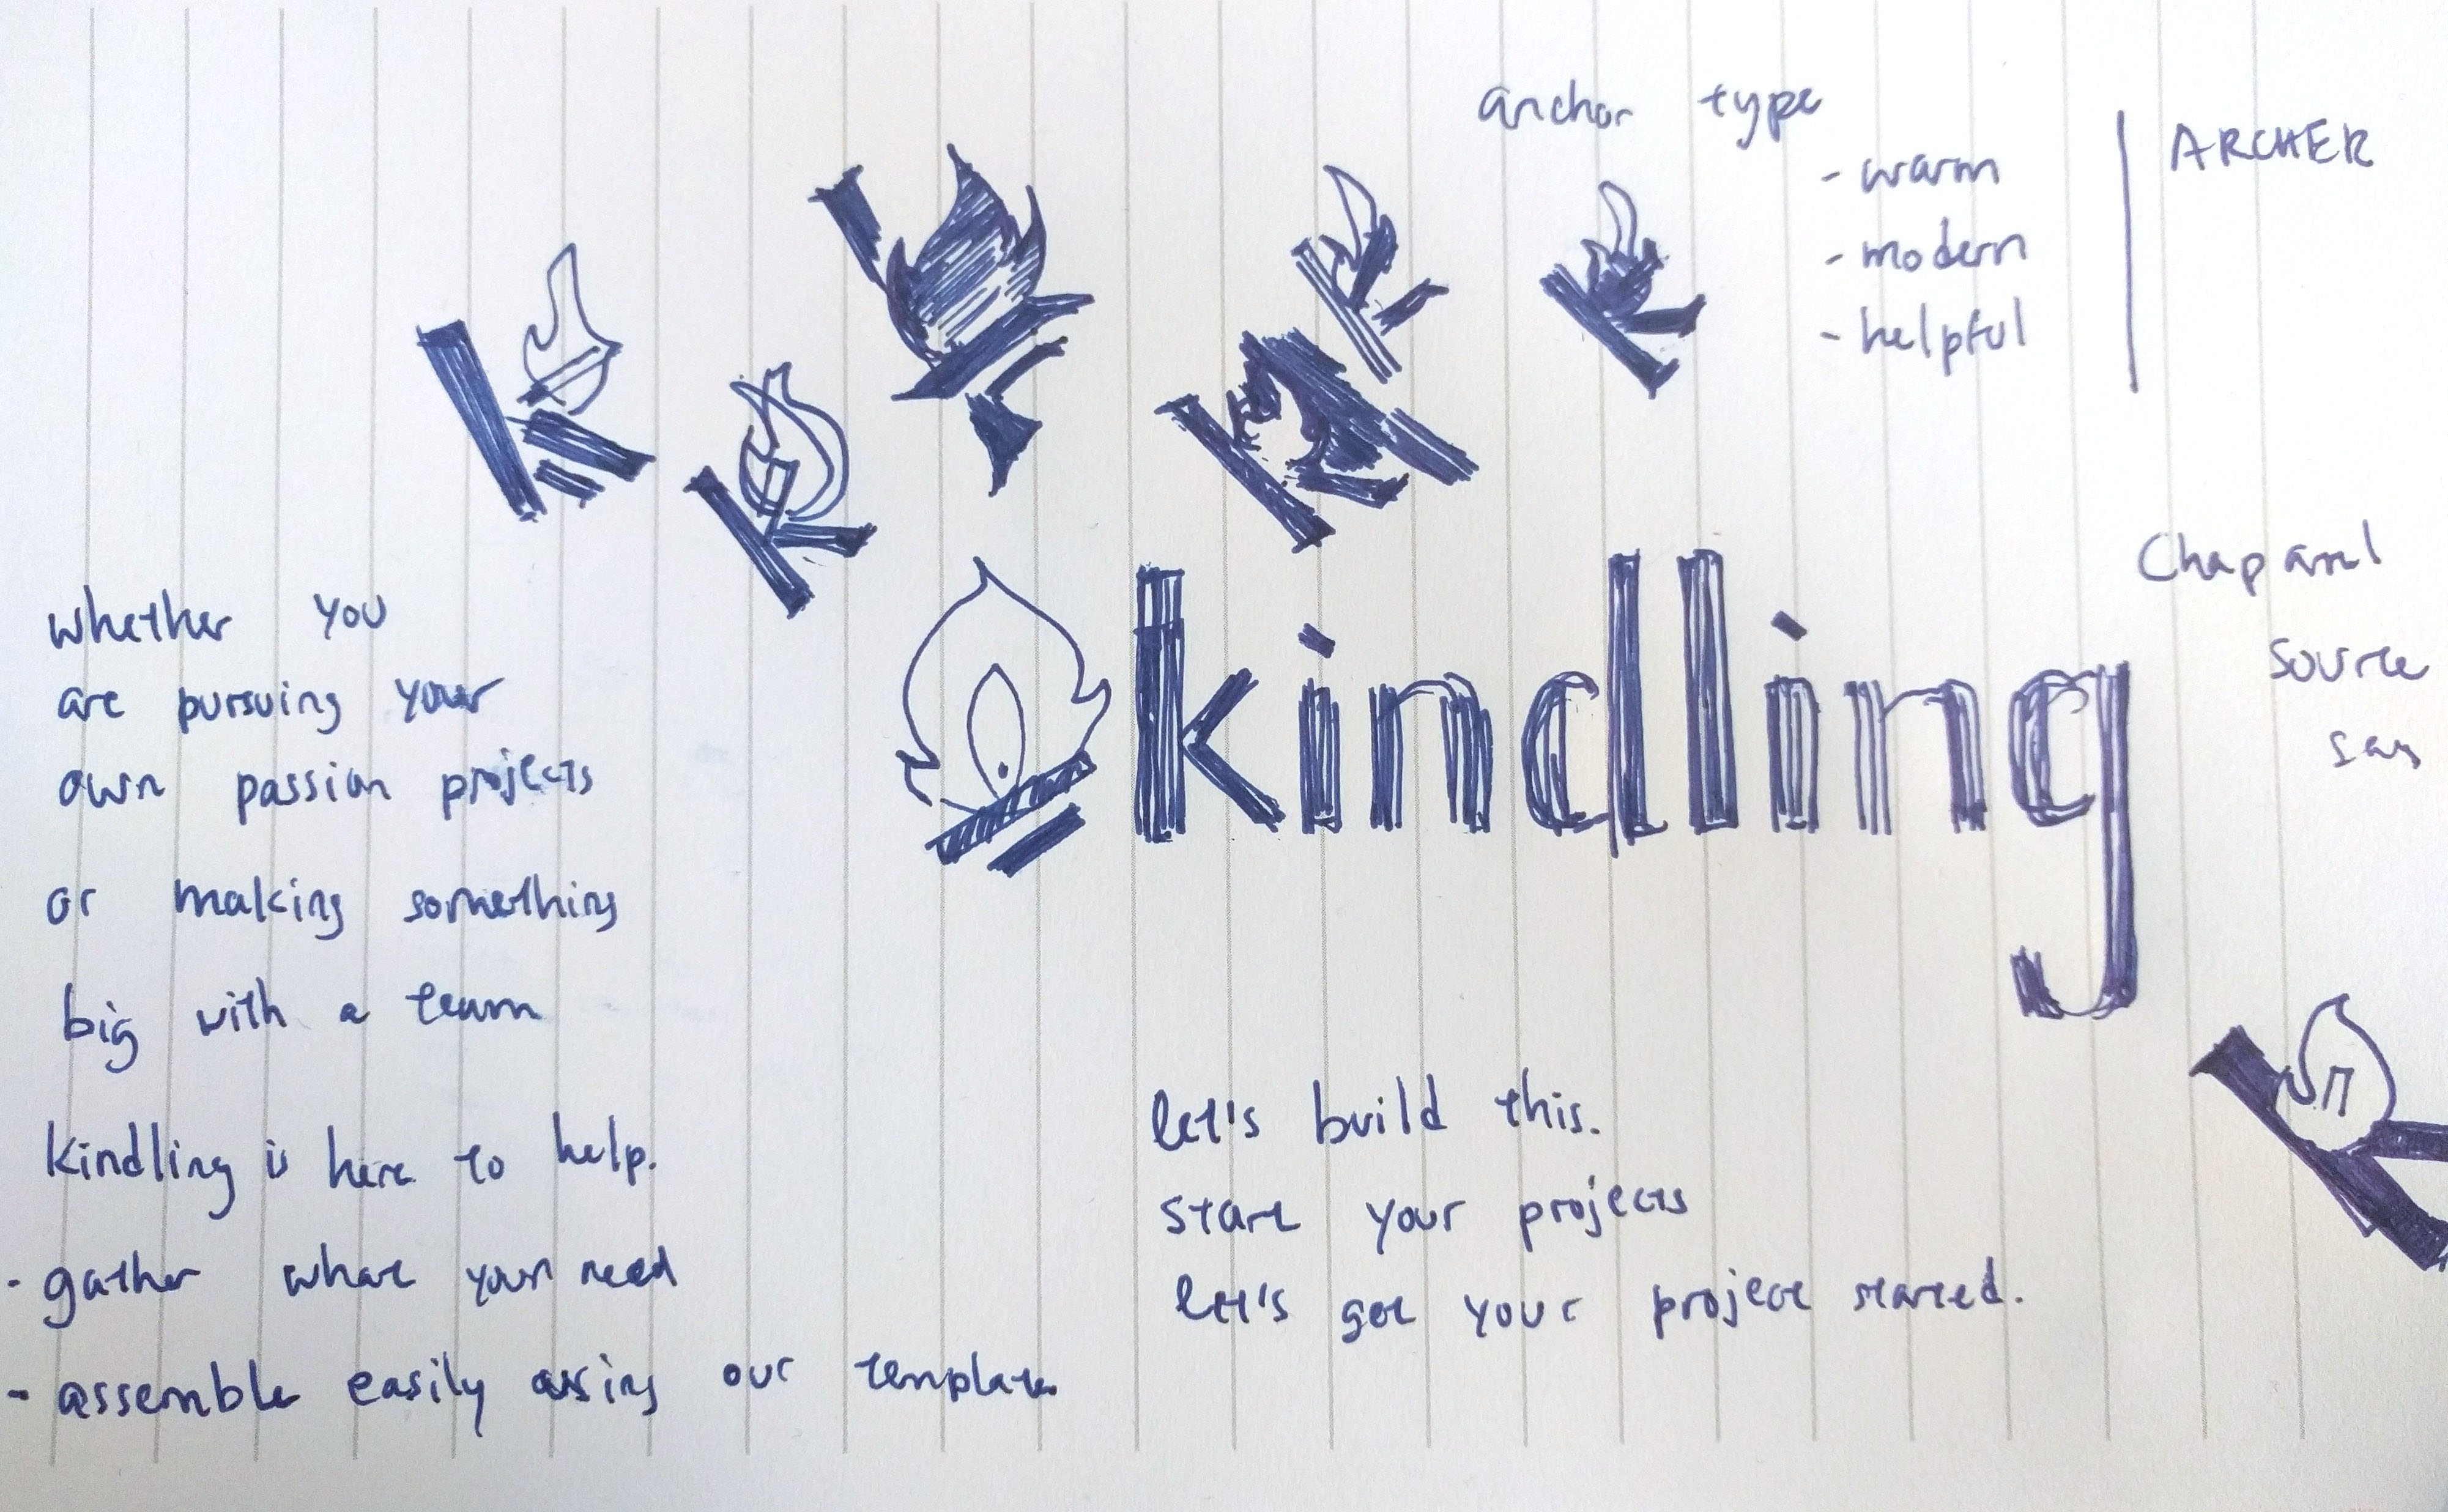 anchor type
- warm
- modern
- helpful
ARCHER
Chaparral
source
san
kindling
whether you
are pursuing your
own passion projects
or making something
big with a team
kindling is here to help.
- gather what your need
- assemble easily using our template
let's build this.
start your projects
let's get your project started.